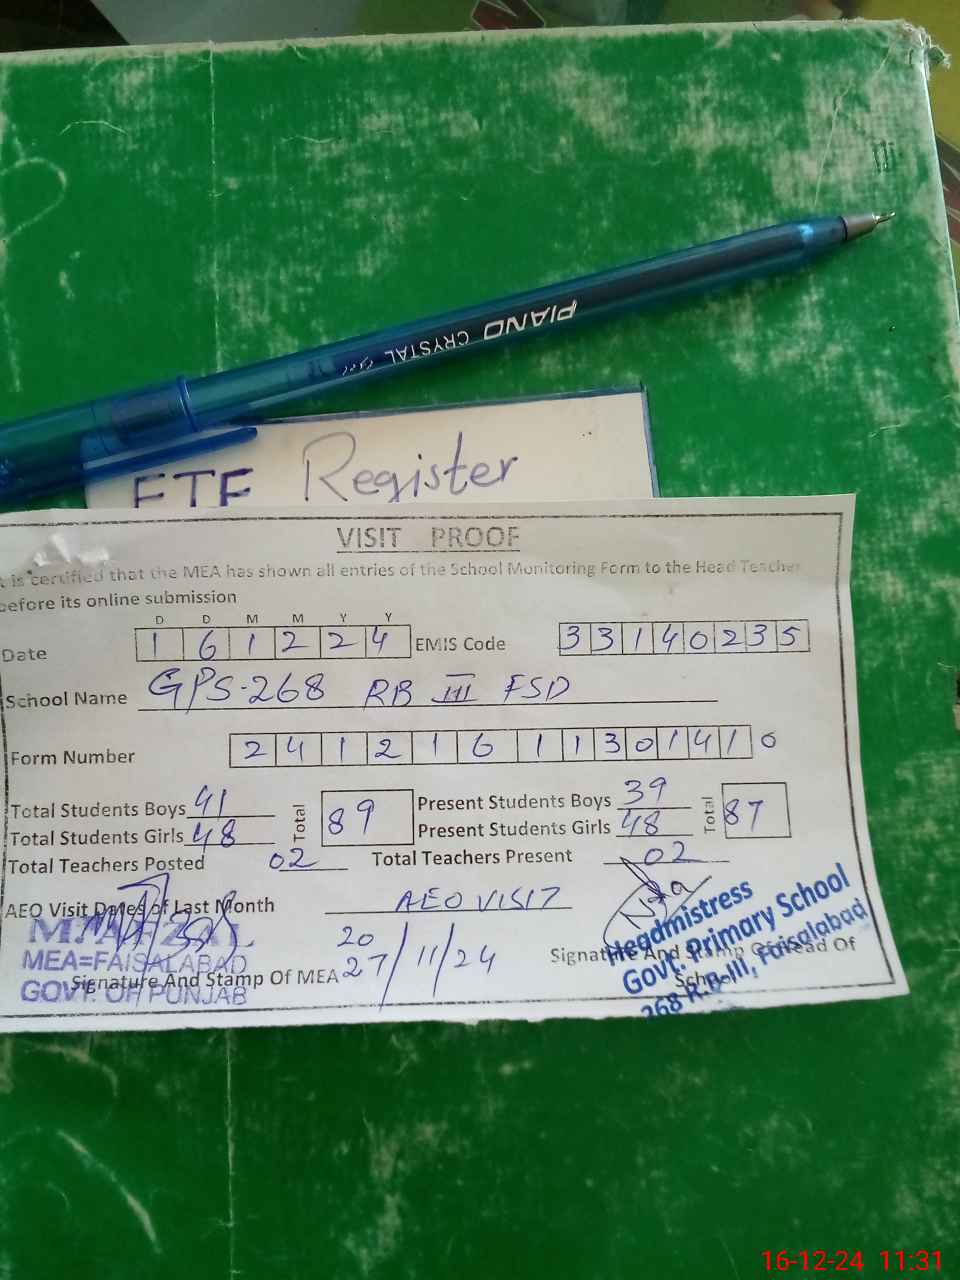 PIANO CRYSTAL
ETF Register
VISIT PROOF
t is certified that the MEA has shown all entries of the School Monitoring Form to the Head Teacher
before its online submission
D D M M Y Y
Date 1 6 1 2 2 4 EMIS Code 3 3 1 4 0 2 3 5
School Name GPS-268 RB III FSD
Form Number 2 4 1 2 1 6 1 1 3 0 1 4 1 0
Total Students Boys 41 Total 89 Present Students Boys 39 Total 87
Total Students Girls 48 Present Students Girls 48
Total Teachers Posted 02 Total Teachers Present 02
AEO Visit Dates of Last Month AEO VISIT
20
27/11/24
M. AFZAL
MEA=FAISALABAD
GOVT. OF PUNJAB
Signature And Stamp Of MEA
Signature And Stamp Of Head Of
School
Headmistress
Govt. Primary School
268 R.B-III, Faisalabad
16-12-24 11:31